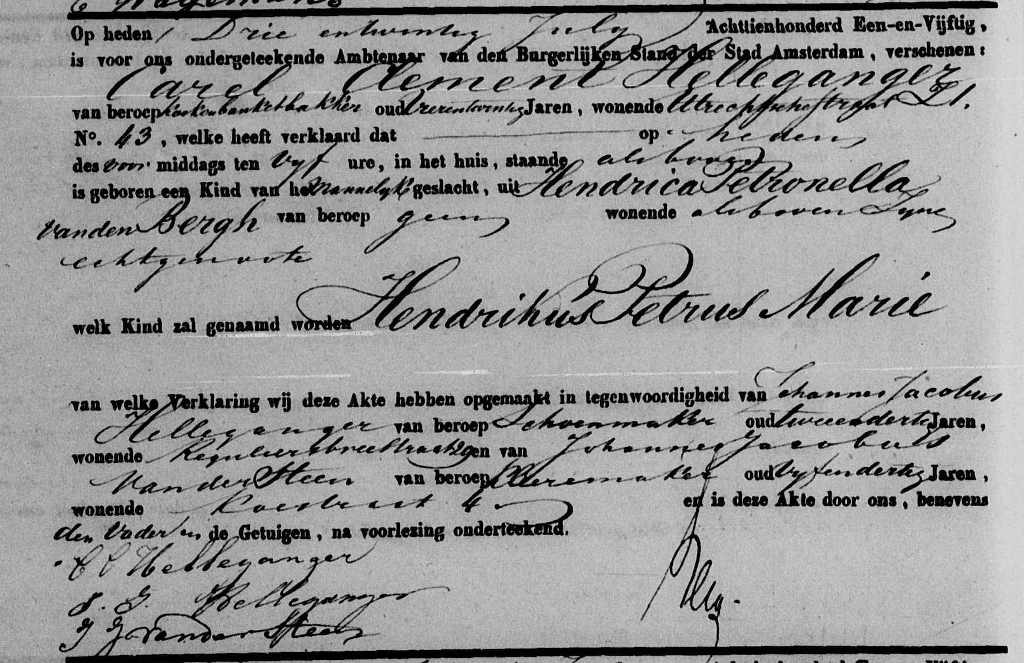 Op heden Drie entwintig July Achttienhonderd Een-en-Vijftig,
is voor ons ondergeteekende Ambtenaar van den Burgerlijken Stand der Stad Amsterdam, verschenen:
Carel Clement Helleganger
van beroep oud vierentwintig Jaren, wonende
No. 43, welke heeft verklaard dat op heden
des voor middags ten Vyf ure, in het huis, staande als boven
is geboren een Kind van het Mannelyk geslacht, uit Hendrica Petronella
van den Bergh van beroep geen wonende als boven Zyne
echtgenoote
welk Kind zal genaamd worden Hendrikus Petrus Marie
van welke Verklaring wij deze Akte hebben opgemaakt in tegenwoordigheid van Johannes Jacobus
Helleganger van beroep Schoenmaker oud tweeendertig Jaren,
wonende en van Johannes Jacobus
van der Steen van beroep oud Vyfendertig Jaren,
wonende Koestraat 4 en is deze Akte door ons, benevens
den Vader en de Getuigen, na voorlezing onderteekend.
C C Helleganger
J. J. Helleganger
J J van der Steen